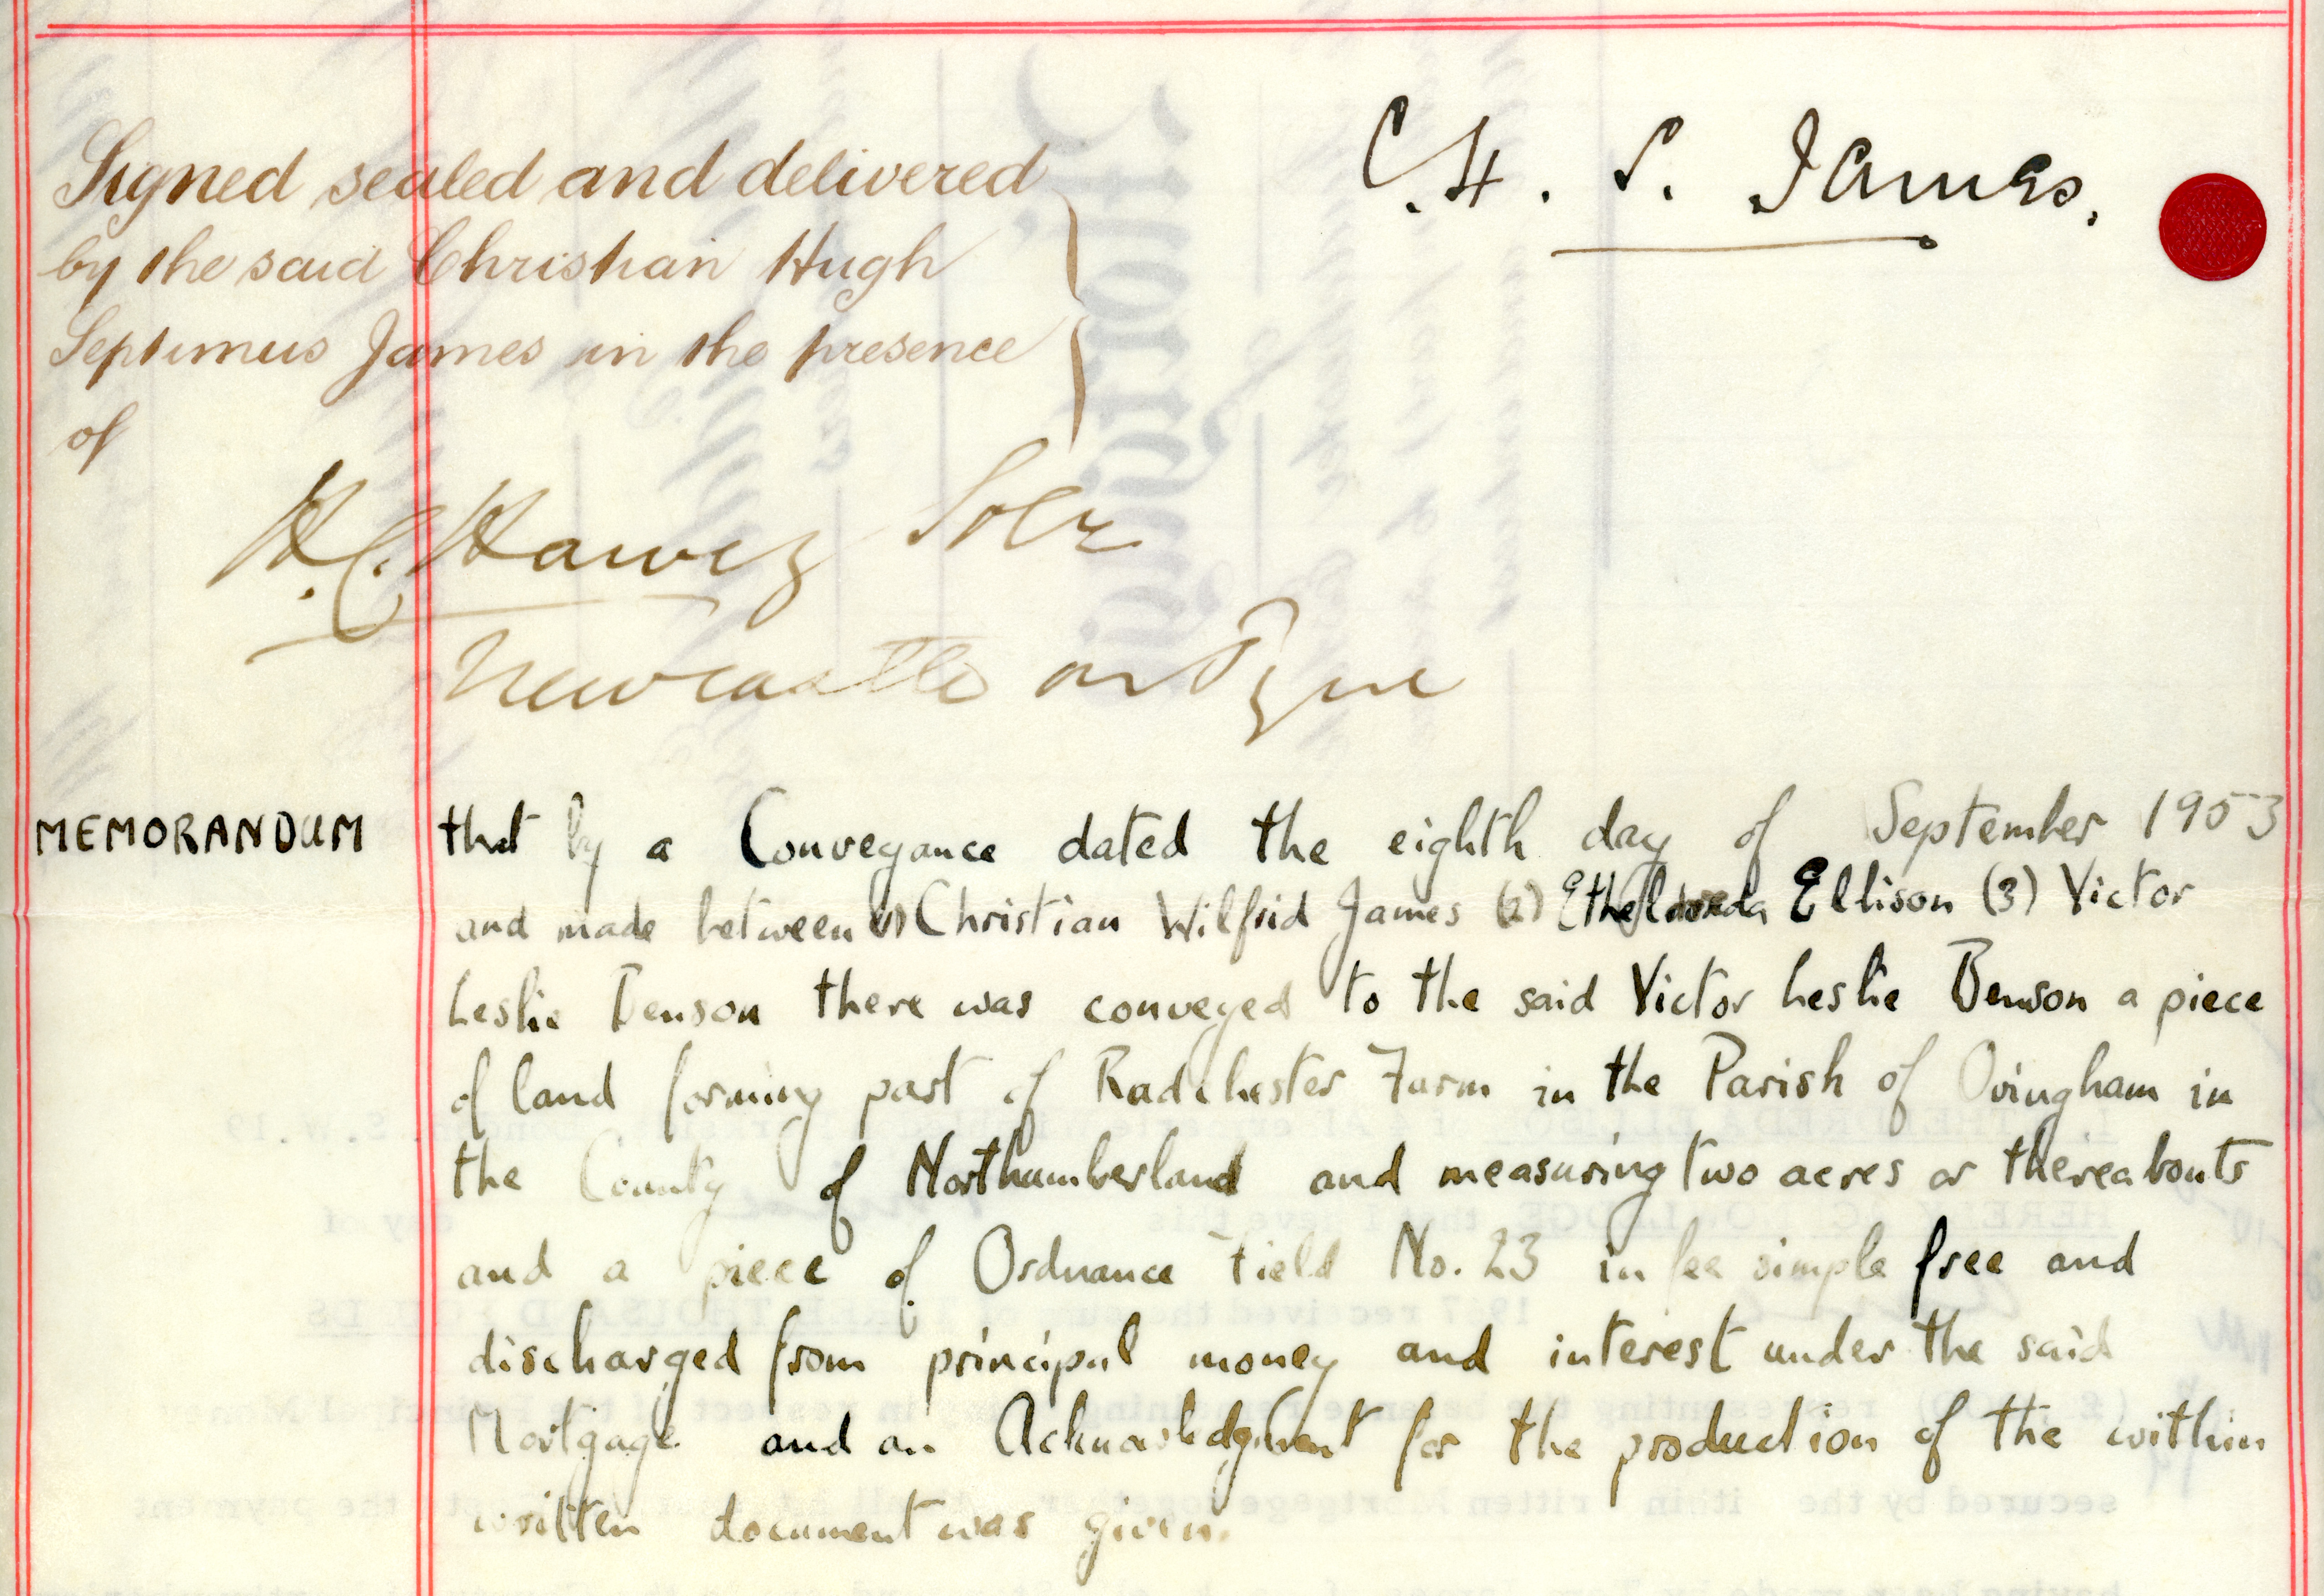 Signed sealed and delivered
by the said Christian Hugh
Septimus James in the presence
of
C. H. S. James.
Solr
Newcastle on Tyne
MEMORANDUM that by a Conveyance dated the eighth day of September 1953
and made between (1) Christian Wilfrid James (2) Etheldreda Ellison (3) Victor
Leslie Benson there was conveyed to the said Victor Leslie Benson a piece
of land forming part of Radchester Farm in the Parish of Ovingham in
the County of Northumberland and measuring two acres or thereabouts
and a piece of Ordnance Field No. 23 in fee simple free and
discharged from principal money and interest under the said
Mortgage and an Acknowledgment for the production of the within
written document was given.